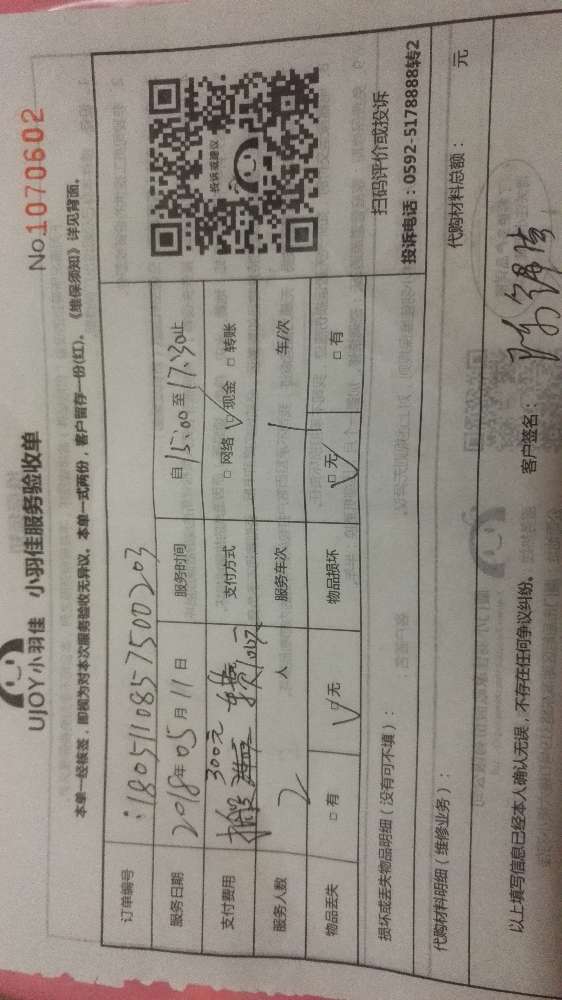 UJOY小羽佳 小羽佳服务验收单 No1070602
本单一经核签，即视为对本次服务验收无异议。本单一式两份，客户留存一份(红)。《维保须知》详见背面。
订单编号 1805110857500203
服务日期 2018年05月11日 服务时间 自15:00至17:30止
支付费用 300元 支付方式 □网络 □现金 □转账
服务人数 2 人 服务车次 1 车/次
物品丢失 □有 □无 物品损坏 □无 □有
投诉或建议
扫码评价或投诉
投诉电话：0592-5178888转2
损坏或丢失物品明细（没有可不填）：
代购材料明细（维修业务）： 代购材料总额： 元
以上填写信息已经本人确认无误，不存在任何争议纠纷。 客户签名：